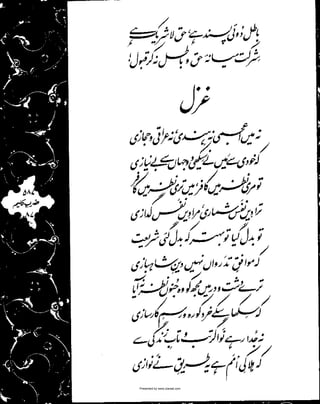 باطل دُوئی پسند ہے، حق لا شریک ہے
شرکت میانۂ حق و باطل نہ کر قبول!
غزل
نہ میں اعجمی نہ ہندی، نہ عراقی و حجازی
کہ خودی سے میں نے سیکھی دوجہاں سے بے نیازی
تو مری نظر میں کافر، میں تری نظر میں کافر
ترا دیں نفس شماری، مرا دیں نفس گدازی
تو بدل گیا تو بہتر کہ بدل گئی شریعت
کہ موافق تدرواں نہیں دین شاہبازی
ترے دشت و در میں مجھ کو وہ جنوں نظر نہ آیا
کہ سکھا سکے خرد کو رہ و رسم کارسازی
نہ جدا رہے نوا گر تب و تاب زندگی سے
کہ ہلاکی امم ہے یہ طریق نے نوازی
ضرب کلیم
Presented by www.ziaraat.com